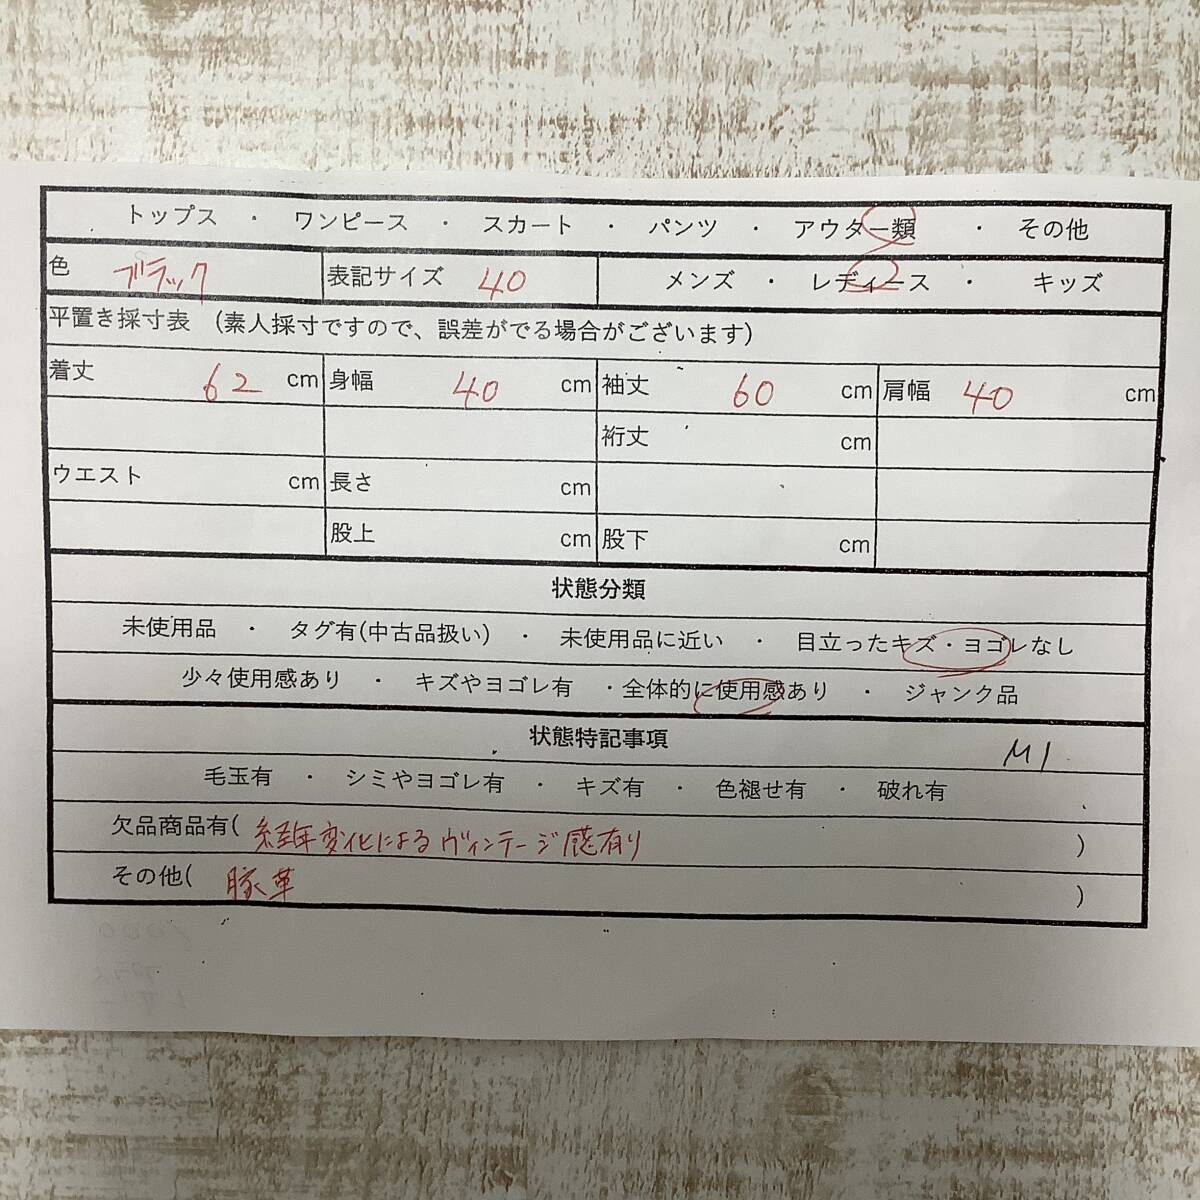 トップス ・ ワンピース ・ スカート ・ パンツ ・ アウター類 ・ その他
色 ブラック 表記サイズ 40 メンズ ・ レディース ・ キッズ
平置き採寸表 (素人採寸ですので、誤差がでる場合がございます)
着丈 62 cm 身幅 40 cm 袖丈 60 cm 肩幅 40 cm
裄丈 cm
ウエスト cm 長さ cm
股上 cm 股下 cm
状態分類
未使用品 ・ タグ有(中古品扱い) ・ 未使用品に近い ・ 目立ったキズ・ヨゴレなし
少々使用感あり ・ キズやヨゴレ有 ・全体的に使用感あり ・ ジャンク品
状態特記事項 M1
毛玉有 ・ シミやヨゴレ有 ・ キズ有 ・ 色褪せ有 ・ 破れ有
欠品商品有( 経年変化によるヴィンテージ感有り )
その他( 豚革 )